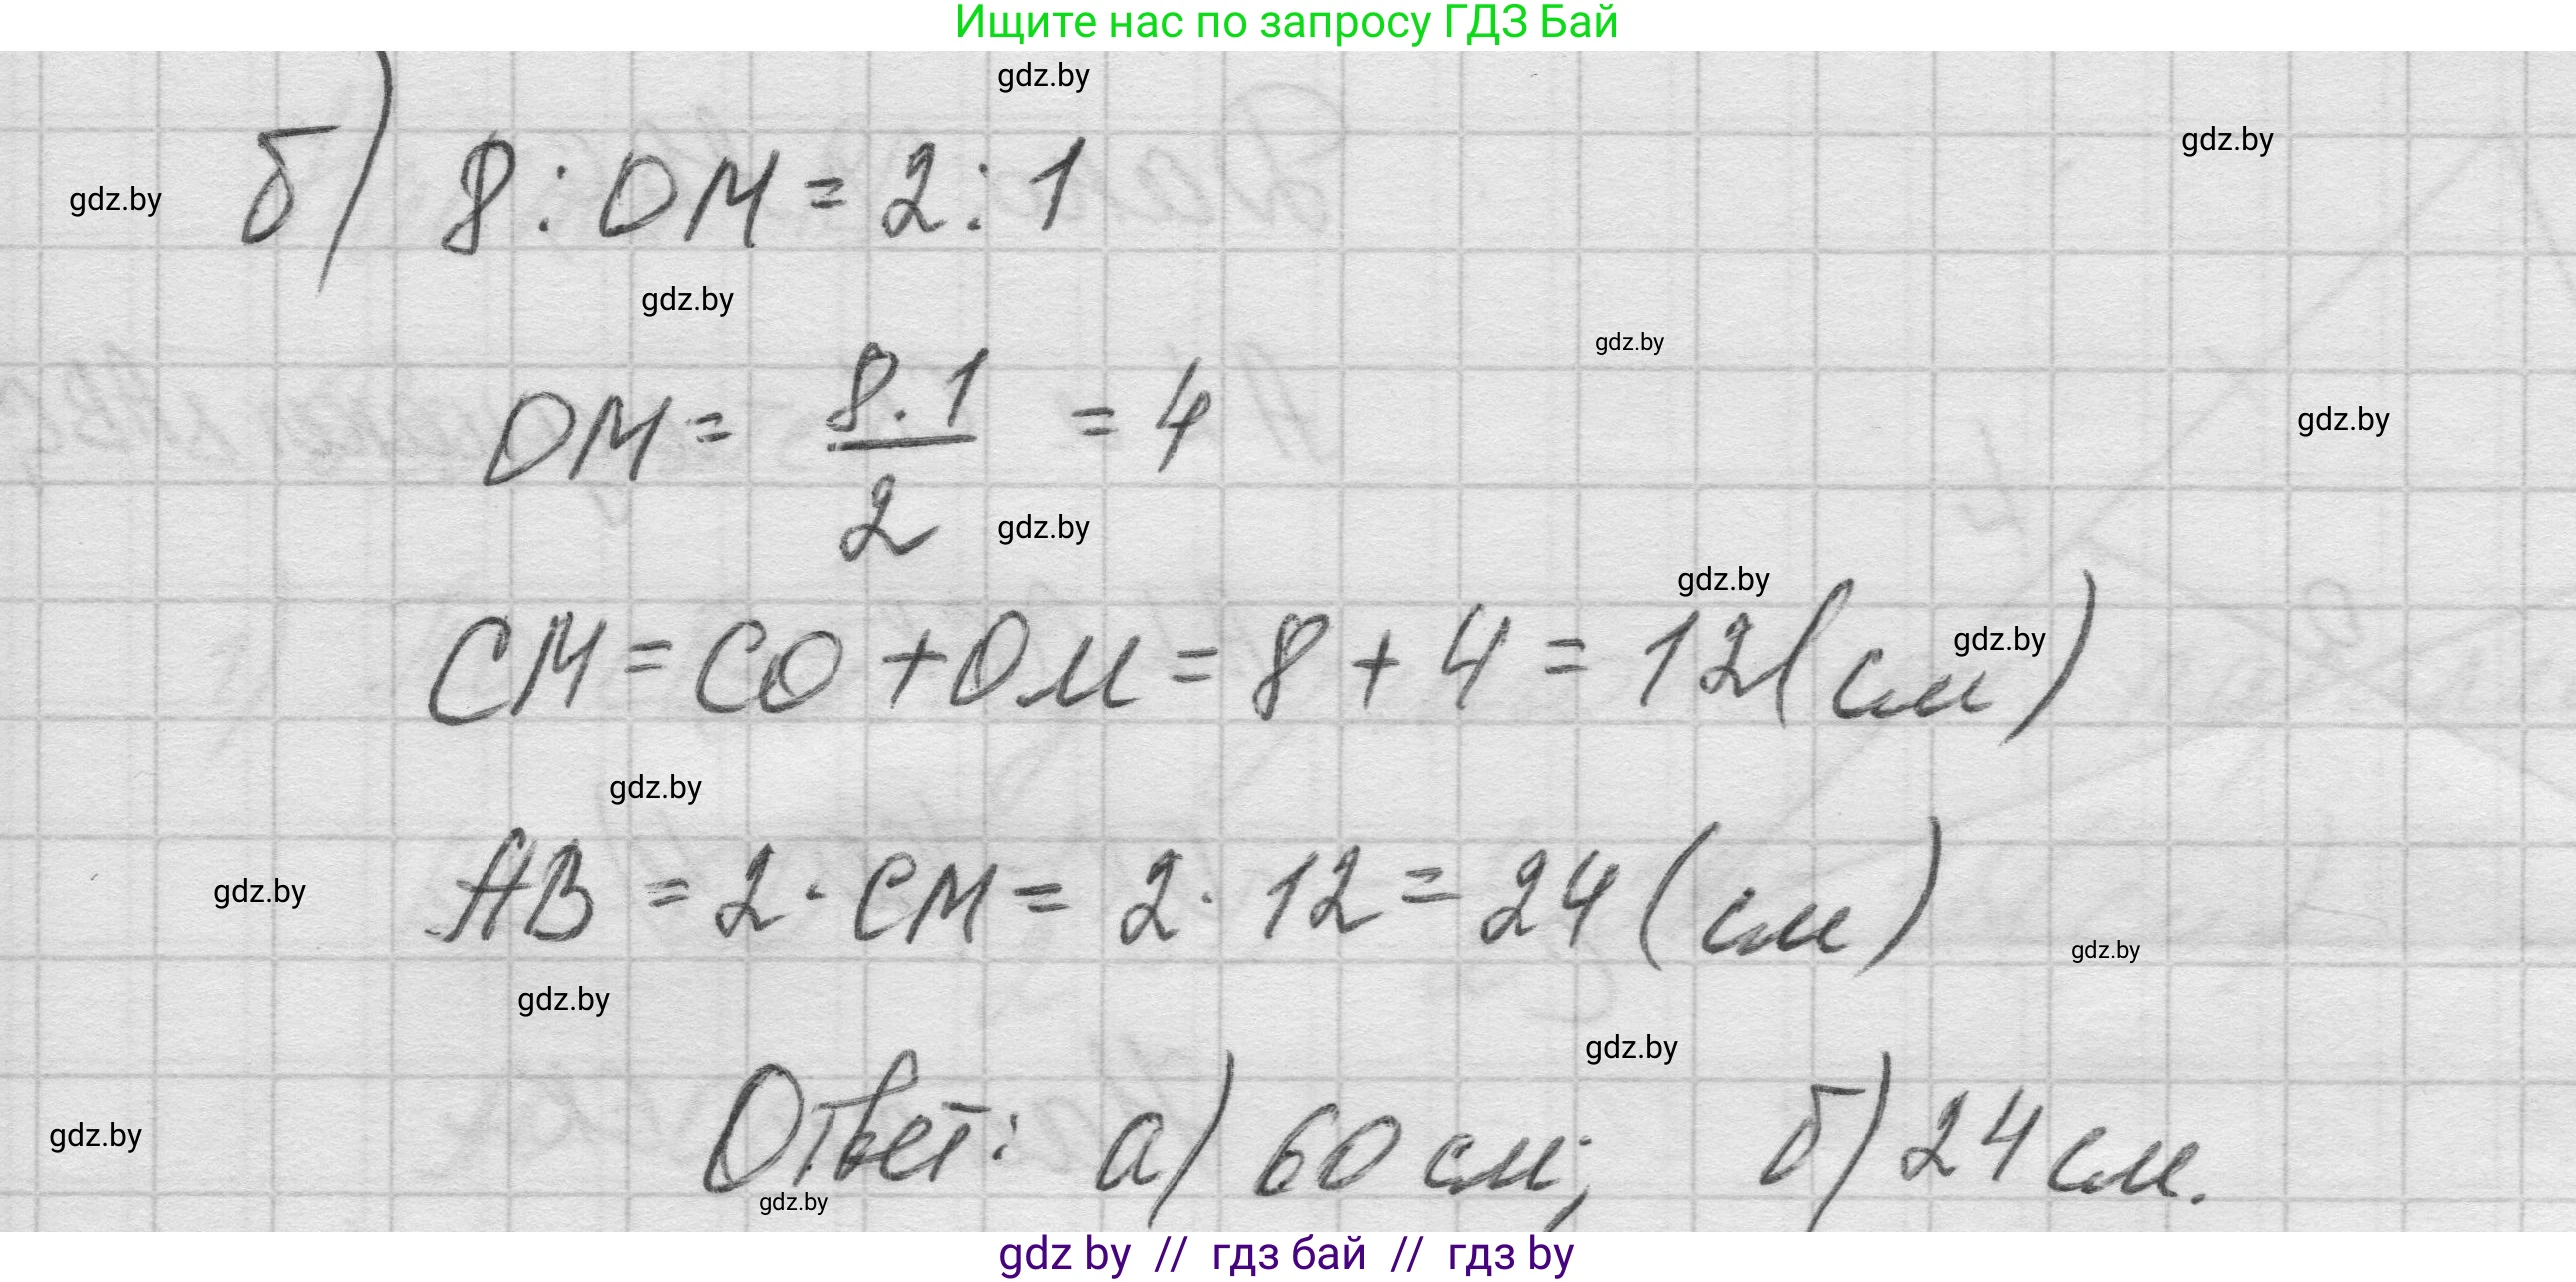 Ищите нас по запросу ГДЗ Бай
gdz.by
gdz.by
б) 8 : ОМ = 2 : 1
gdz.by
gdz.by
gdz.by
ОМ = 8·1/2 = 4
gdz.by
gdz.by
gdz.by
СМ = СО + ОМ = 8 + 4 = 12 (см)
gdz.by
gdz.by
АВ = 2 · СМ = 2 · 12 = 24 (см)
gdz.by
gdz.by
gdz.by
gdz.by
Ответ: а) 60 см; б) 24 см.
gdz.by
gdz.by
gdz by // гдз бай // гдз by